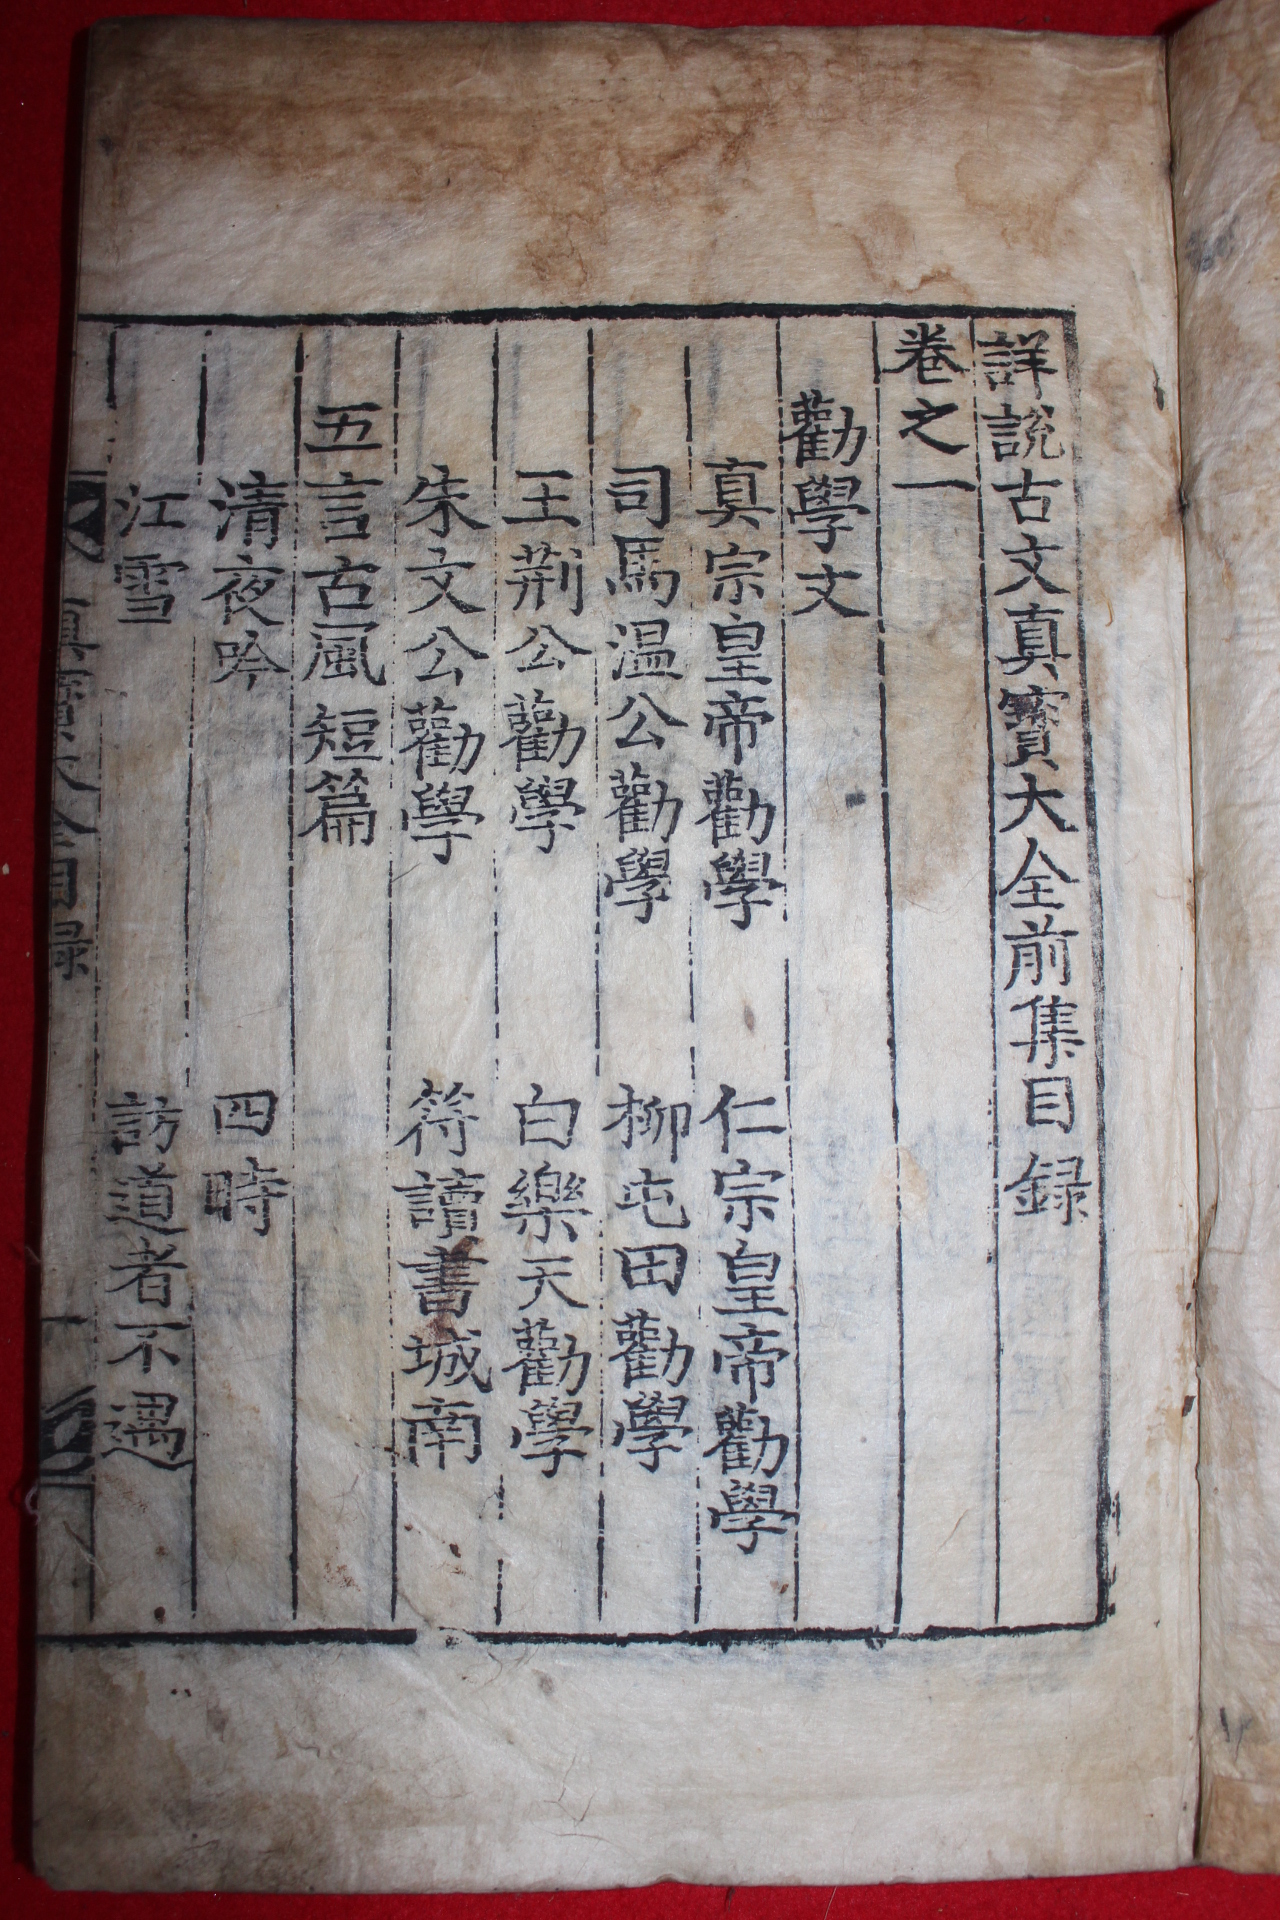 詳說古文真寶大全前集目録
卷之一
勸學文
真宗皇帝勸學 仁宗皇帝勸學
司馬温公勸學 柳屯田勸學
王荆公勸學 白樂天勸學
朱文公勸學 符讀書城南
五言古風短篇
清夜吟 四時
江雪 訪道者不遇
真寶大全目録 一